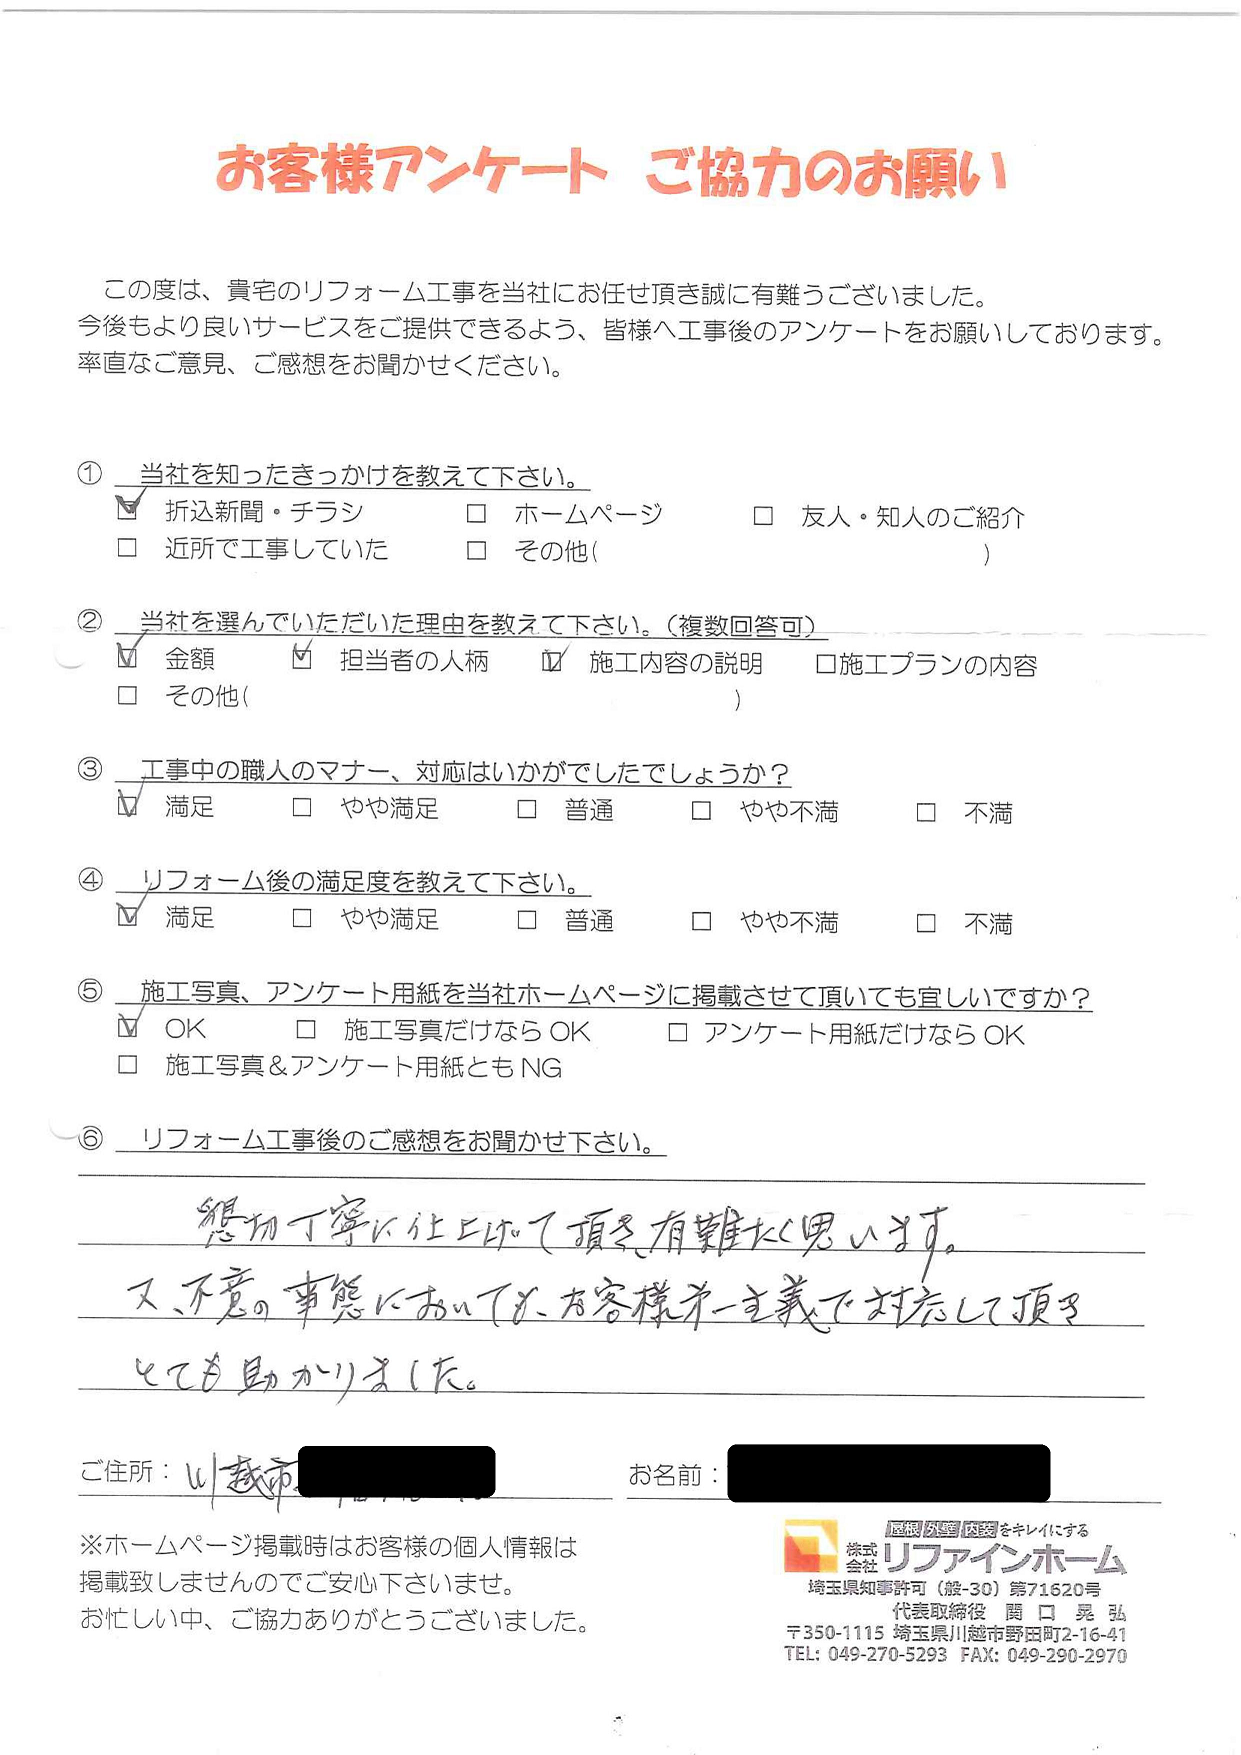 お客様アンケート ご協力のお願い
この度は、貴宅のリフォーム工事を当社にお任せ頂き誠に有難うございました。
今後もより良いサービスをご提供できるよう、皆様へ工事後のアンケートをお願いしております。
率直なご意見、ご感想をお聞かせください。
① 当社を知ったきっかけを教えて下さい。
☑ 折込新聞・チラシ □ ホームページ □ 友人・知人のご紹介
□ 近所で工事していた □ その他( )
② 当社を選んでいただいた理由を教えて下さい。（複数回答可）
☑ 金額 ☑ 担当者の人柄 ☑ 施工内容の説明 □施工プランの内容
□ その他( )
③ 工事中の職人のマナー、対応はいかがでしたでしょうか？
☑ 満足 □ やや満足 □ 普通 □ やや不満 □ 不満
④ リフォーム後の満足度を教えて下さい。
☑ 満足 □ やや満足 □ 普通 □ やや不満 □ 不満
⑤ 施工写真、アンケート用紙を当社ホームページに掲載させて頂いても宜しいですか？
☑ OK □ 施工写真だけなら OK □ アンケート用紙だけなら OK
□ 施工写真＆アンケート用紙とも NG
⑥ リフォーム工事後のご感想をお聞かせ下さい。
懇切丁寧に仕上げて頂き、有難たく思います。
又、不意の事態においても、お客様第一主義で対応して頂き
とても助かりました。
ご住所： 川越市 お名前：
※ホームページ掲載時はお客様の個人情報は
掲載致しませんのでご安心下さいませ。
お忙しい中、ご協力ありがとうございました。
屋根 外壁 内装をキレイにする
株式会社 リファインホーム
埼玉県知事許可（般-30）第71620号
代表取締役 関口 晃弘
〒350-1115 埼玉県川越市野田町2-16-41
TEL: 049-270-5293 FAX: 049-290-2970